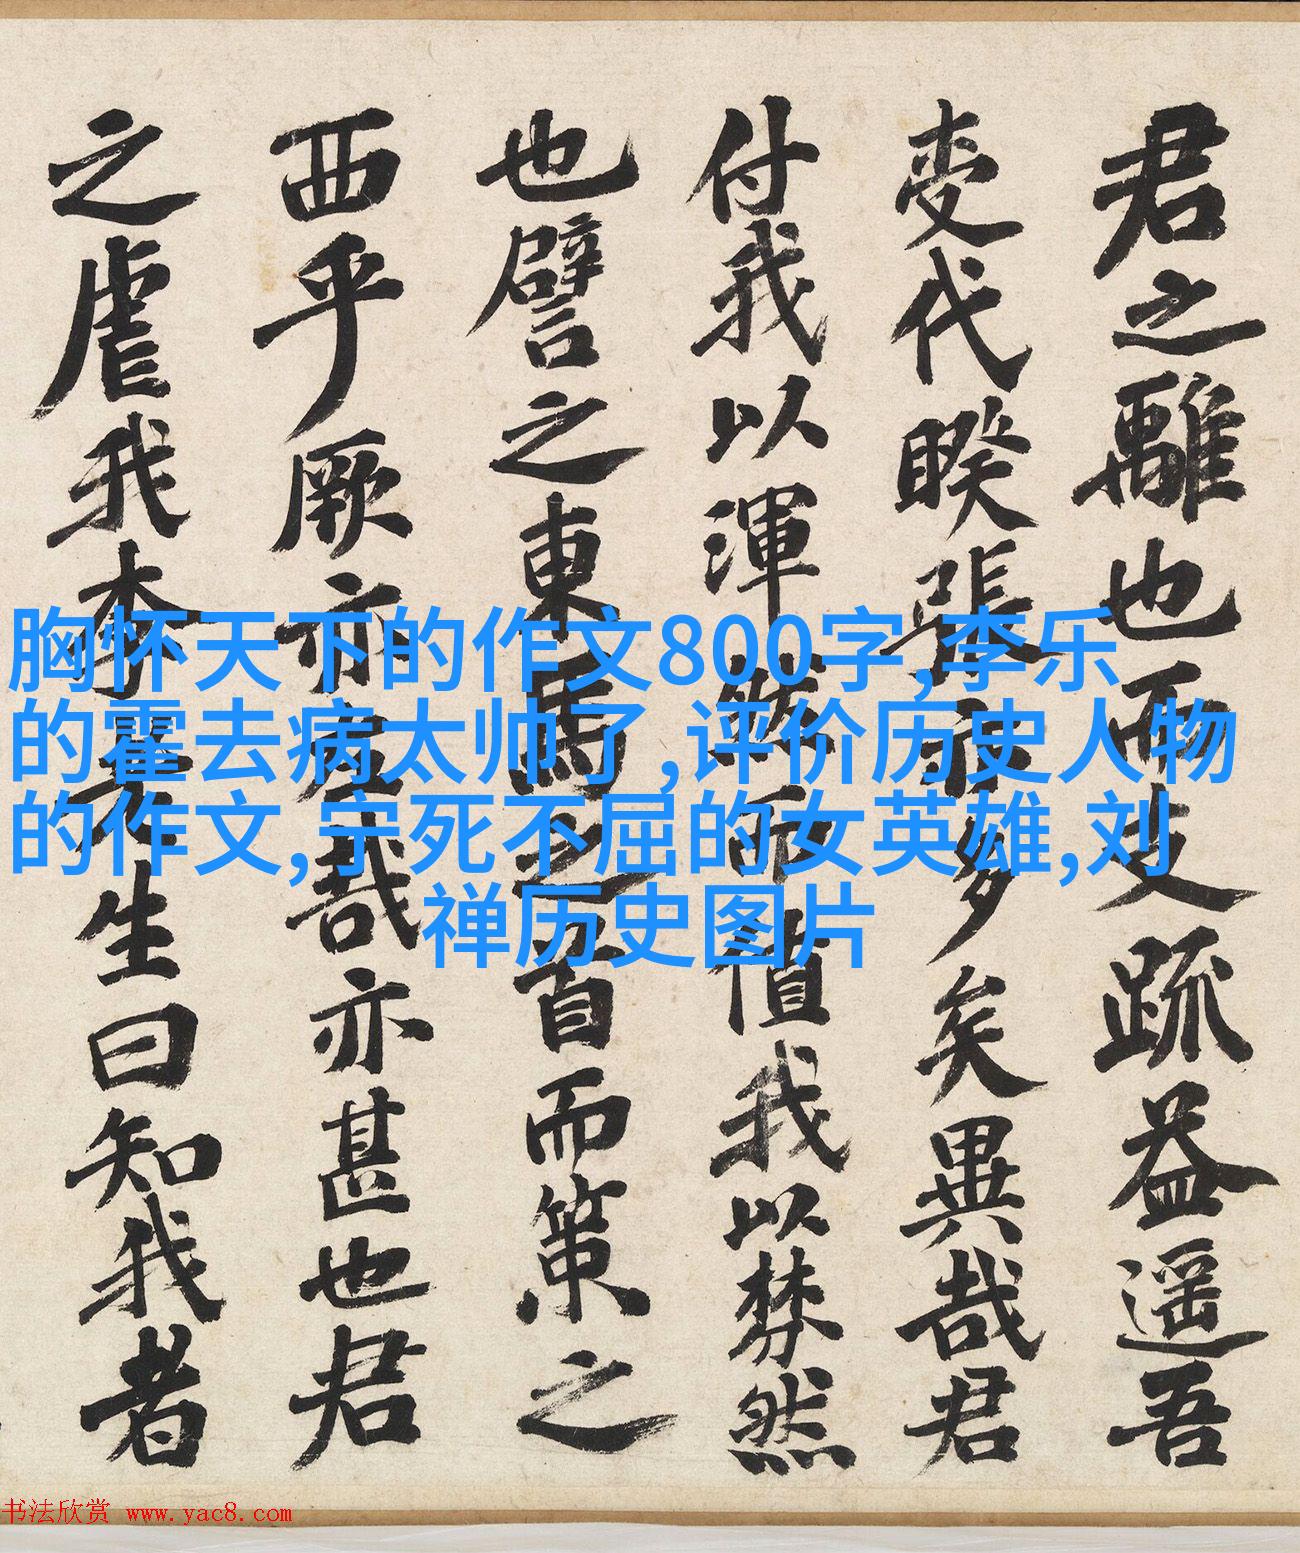 君之離也而支疏益遥吾
变代睽張衤多矣異哉君
付我以渾然而值我以棼然
也譬之東馬之首而策之
西乎厥亦左哉亦甚也君
之虐我李夫生曰知我者
胸怀天下的作文800字,李乐
的霍去病太帅了,评价历史人物
的作文,宁死不屈的女英雄,刘
禅历史图片
书法欣赏 www.yac8.com